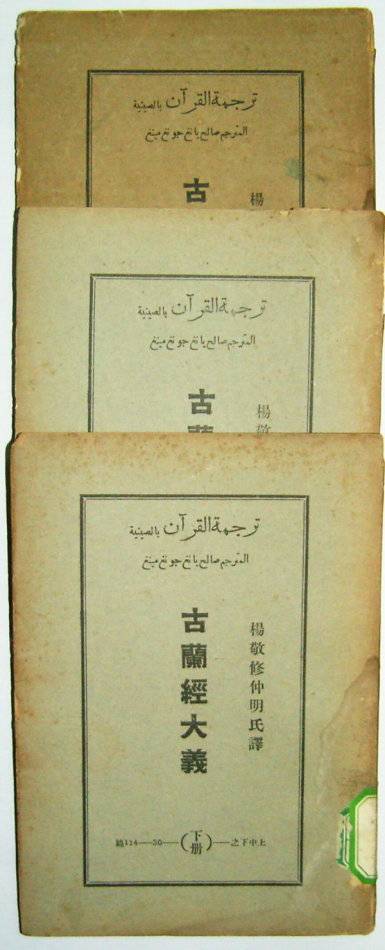 ترجمة القرآن بالصينية
المترجم صالح يانغ جونغ مينغ
楊
古
ترجمة القرآن بالصينية
المترجم صالح يانغ جونغ مينغ
楊敬
古蘭
ترجمة القرآن بالصينية
المترجم صالح يانغ جونغ مينغ
楊敬修仲明氏譯
古蘭經大義
上中下之——(下册)——30——114